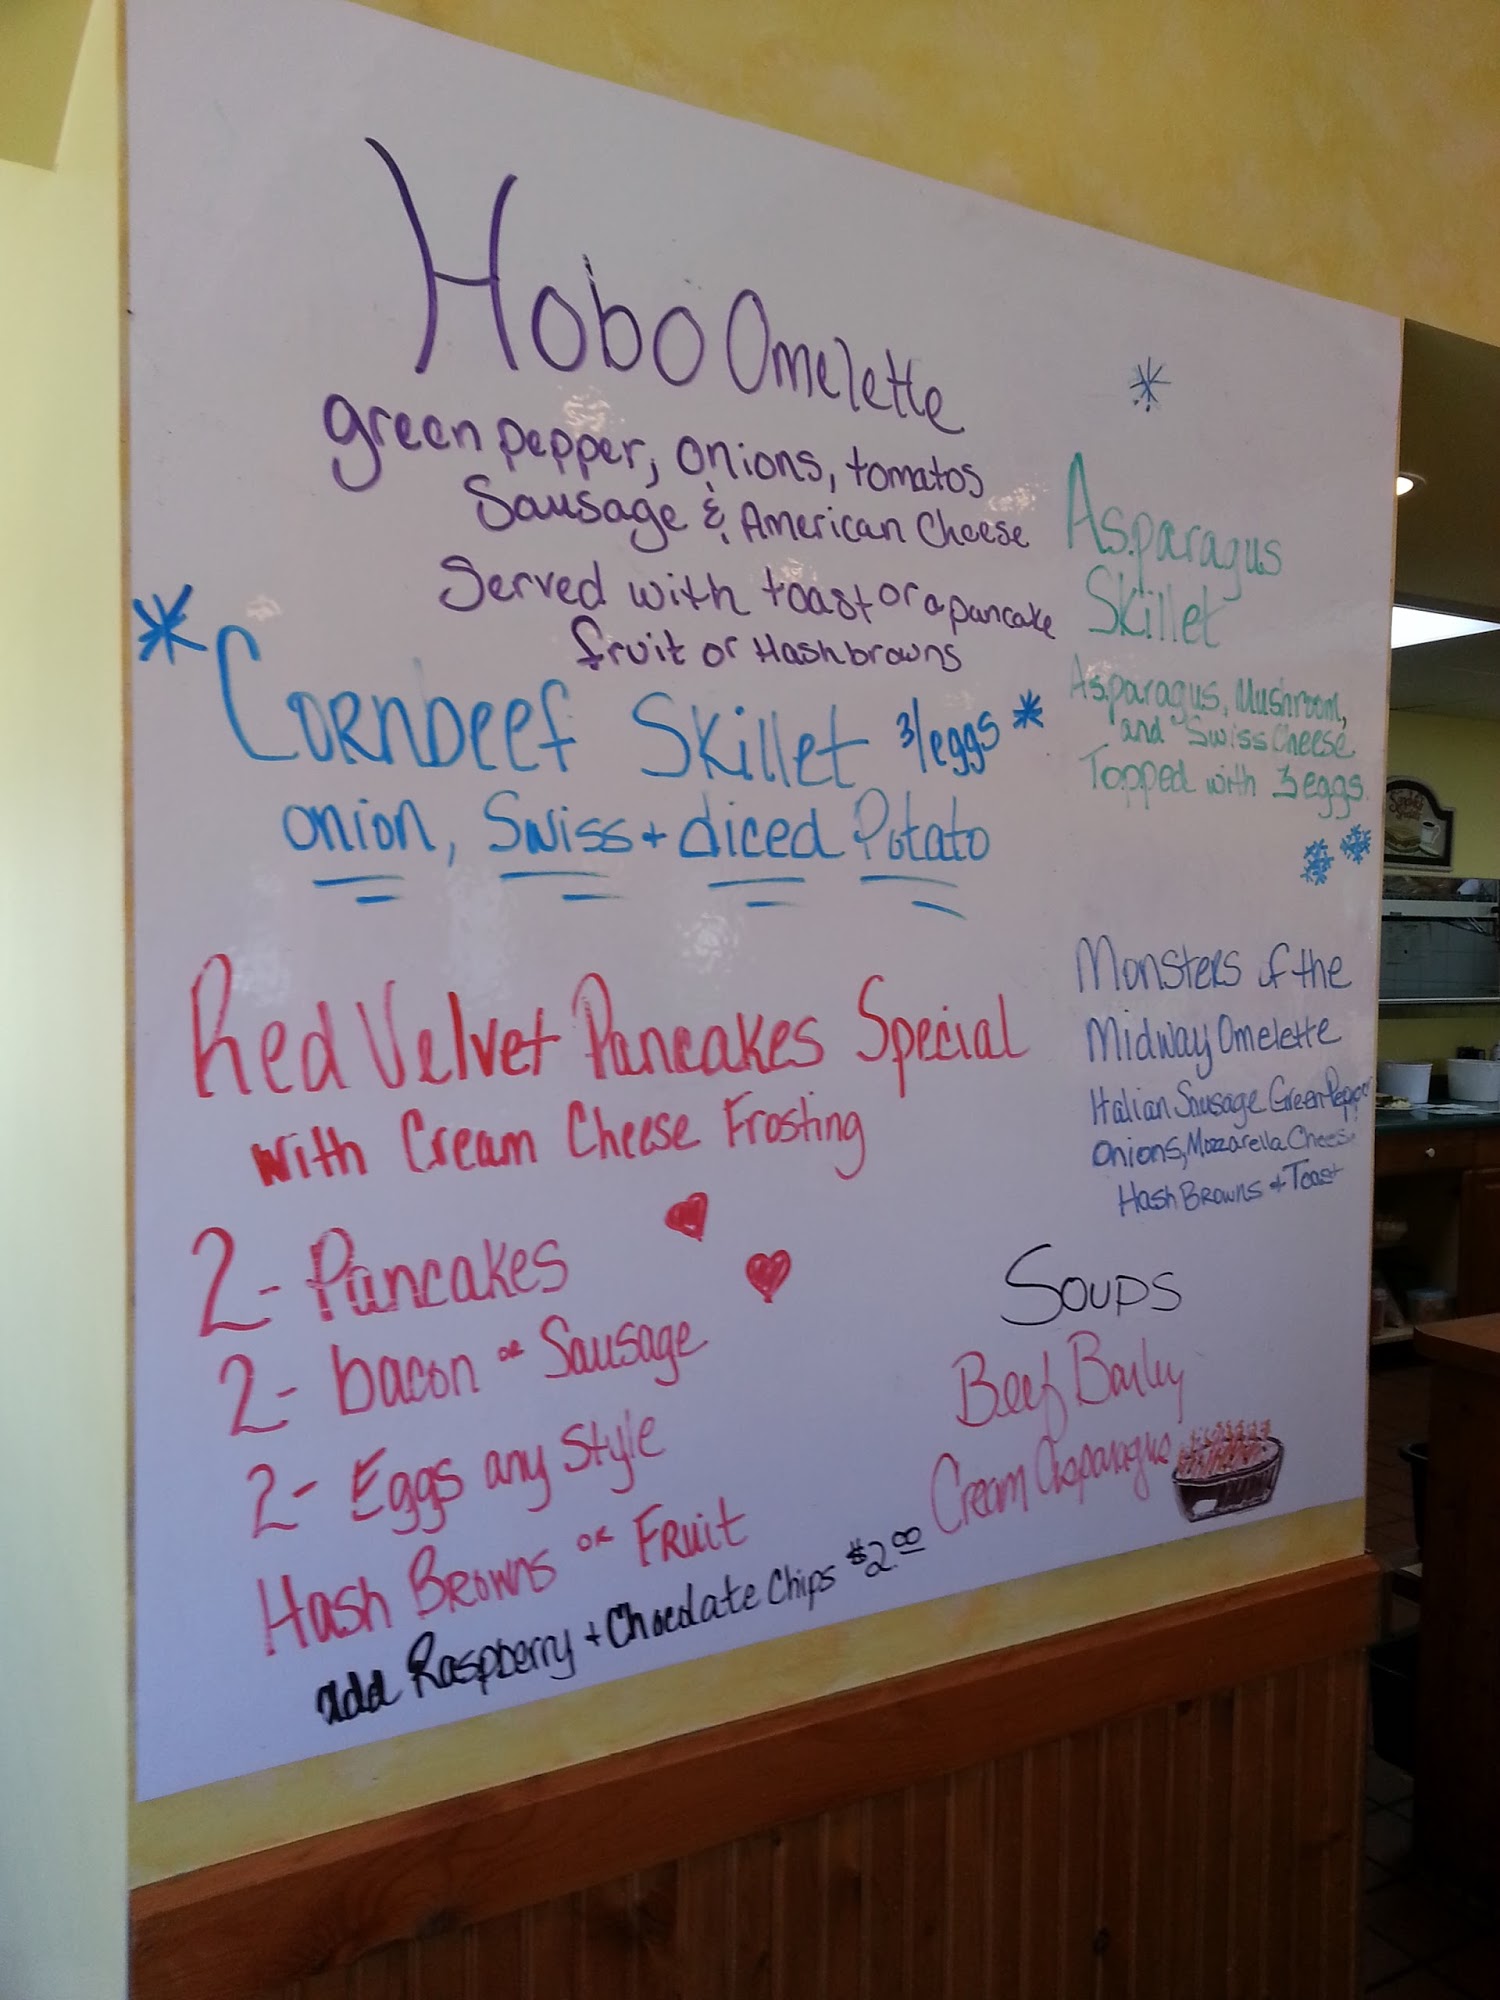 Hobo Omelette
green pepper, onions, tomatos
Sausage & American Cheese
Served with toast or a pancake
fruit or Hashbrowns
Cornbeef Skillet 3/eggs
onion, Swiss + diced Potato
Red Velvet Pancakes Special
with Cream Cheese Frosting
2- Pancakes
2- bacon or Sausage
2- Eggs any Style
Hash Browns or Fruit
add Raspberry + Chocolate Chips $2.00
Asparagus
Skillet
Asparagus, Mushroom,
and Swiss Cheese
Topped with 3 eggs.
Monsters of the
Midway Omelette
Italian Sausage Green Pepper
Onions, Mozzarella Chees
Hash Browns + Toast
Soups
Beef Barley
Cream Asparagus